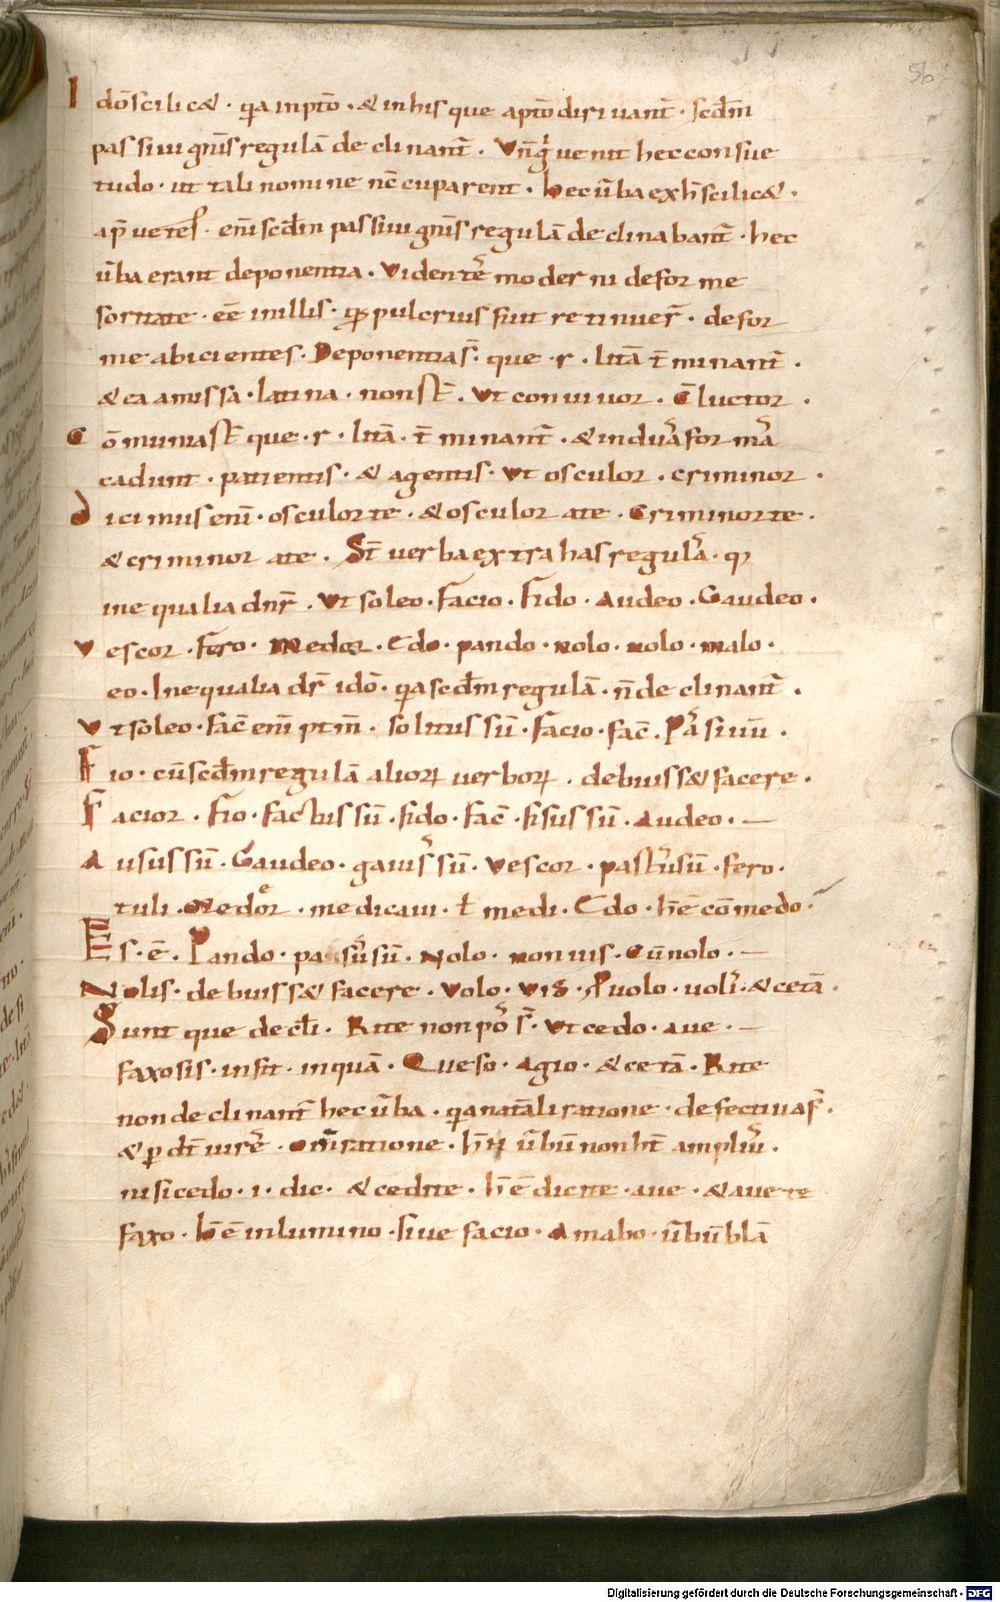 56
Idō scilic& · q̄a in ptō · & in his que a ptō diriuant̄ · scđm
passiui gnīs regulā declinant̄ · Vn̄ g̊ uenit hec consue
tudo · ut tali nomine nc̄cuparent · hec ūba ex h̄ scilic& ·
ap̄ ueteſ · eni̅ scđm passiui gnīs regulā declinabant̄ · hec
ūba erant deponentia · Videntē moderni deforme
sortitate · eē in illis · qđ pulcrius fuit retinuer̄ · defor
me abicientes · Deponentia s̄ · que · r · litā t̄minant̄ ·
& ea amissa · latina · non st̄ · Ut conuiuor · & luctor ·
Cōmunia st̄ que · r · litā · t̄minant̄ · & in dua formā
cadunt · patientis · & agentis · Ut osculor · criminor ·
dicimus eni̅ · osculor te · & osculor a te · Criminor te ·
& criminor a te · St̄ uerba extra has regulā · q̄
inequalia dnr̄ · Ut soleo · Facio · Fido · Audeo · Gaudeo ·
Vescor · Fero · Medeor · Edo · pando · nolo · uolo · malo ·
eo · Inequalia dr̄ idō · q̄a scđm regulā · n̄ declinant̄ ·
Ut soleo · fac̄ eni̅ ptm̄ · solitus sū · Facio · fac̄ · Pasiuū ·
Fio · cū scđm regulā alioꝝ uerboꝝ · debuiss& facere ·
Facior · Fio · factus sū · fido · fac̄ · fisus sū · Audeo · —
Ausus sū · Gaudeo · gauis sū · Vescor · past sū · fero ·
tuli · Medeor · medicaui · ł medi · Edo · h̄ ē comedo ·
Es · ē · Pando · passu sū · Nolo · non uis · Cū nolo · —
Nolis · debuiss& facere · Volo · Vis · P uolo · uoli · & cetā ·
Sunt que decli · Rite non pos̄ · Ut cedo · aue · —
faxo sis · infit · inquā · Queso · Agio · & cetā · Rite
non declinant̄ hec ūba · q̄a natāli ratione · defectiua s̄ ·
& ꝑdt̄ iurē · ratione · h̄ꝝ ūbū non ht̄ ampliu ·
nisi cedo · i · dic · & cedite · h̄ ē dicite · aue · & auete
faxo · h̄ ē inlumino · siue facio · Amabo · ūbū blā
Digitalisierung gefördert durch die Deutsche Forschungsgemeinschaft - DFG